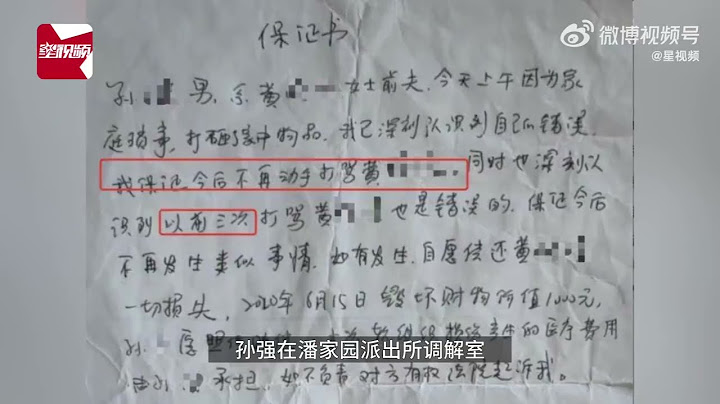 星视频
微博视频号
@星视频
保证书
孙 男,系黄 女士前夫,今天上午因为家
庭琐事,打砸家中物品,我已深刻认识到自己的错误,
我保证今后不再动手打骂黄 ,同时也深刻认
识到以前三次打骂黄 也是错误的,保证今后
不再发生类似事情,如有发生,自愿偿还黄
一切损失,2020年6月15日毁坏财物价值1000元,
孙 愿照 的医疗费用
由孙 承担,如不负责对方有权法院起诉我。
孙强在潘家园派出所调解室